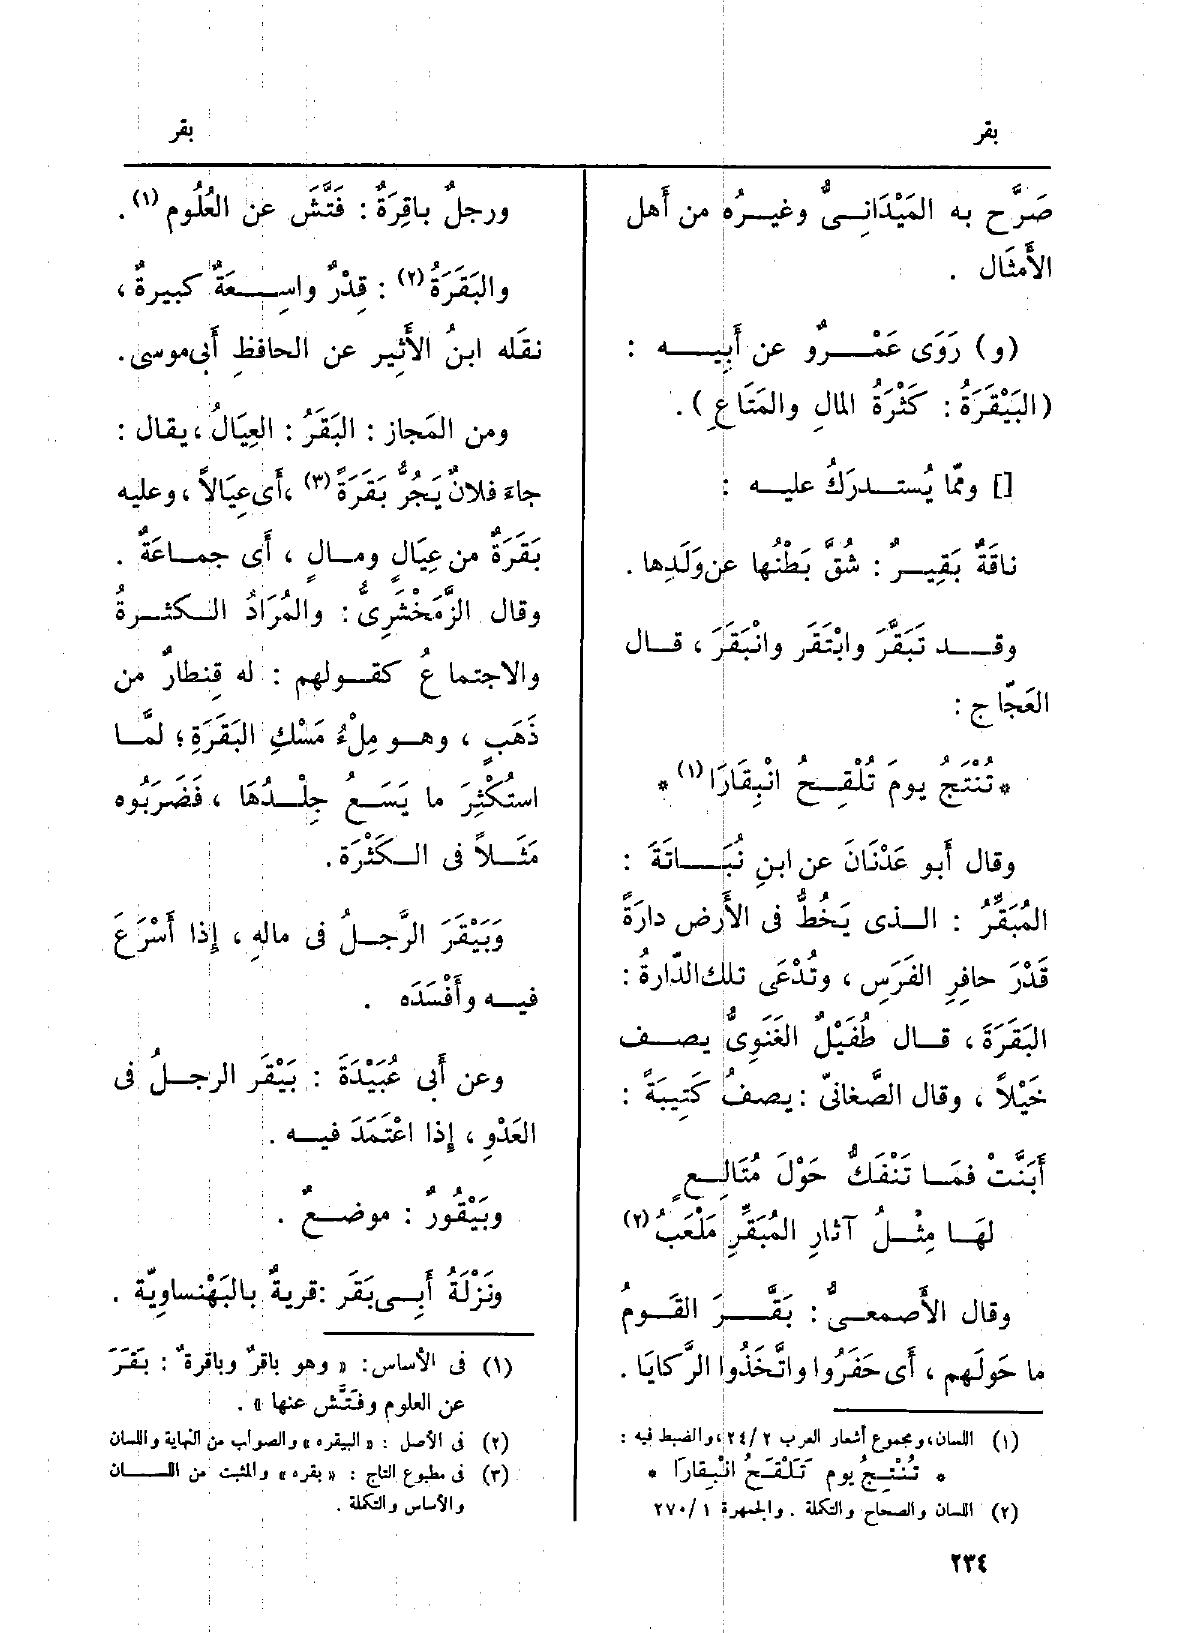 بقر
بقر
صَرَّح به المَيْدَانِىُّ وغيرُه من أَهل
الأَمثَال .
(و) رَوَى عَمْرٌو عن أَبِيه :
(البَيْقَرَةُ : كَثْرَةُ المالِ والمَتَاعِ) .
[] وممّا يُستدرَكُ عليه :
ناقَةٌ بَقِيرٌ : شُقَّ بَطْنُها عن وَلَدِها .
وقد تَبَقَّرَ وابْتَقَر وانْبَقَرَ ، قال
العَجّاج :
* تُنْتَجُ يومَ تُلْقِحُ انْبِقَارَا (١) *
وقال أَبو عَدْنَانَ عن ابنِ نُبَاتَةَ :
المُبَقِّرُ : الذى يَخُطُّ فى الأَرض دارَةً
قَدْرَ حافِرِ الفَرَسِ ، وتُدْعَى تلك الدّارةُ :
البَقَرَةَ ، قال طُفَيْلٌ الغَنَوِىُّ يصف
خَيْلاً ، وقال الصَّغانىّ : يصفُ كَتِيبَةً :
أَبَنَّتْ فمَا تَنْفَكُّ حَوْلَ مُتَالِعٍ
لهَا مِثْلُ آثارِ المُبَقِّرِ مَلْعَبُ (٢)
وقال الأَصمعىُّ : بَقَّرَ القَومُ
ما حَولَهم ، أَى حَفَرُوا واتَّخَذُوا الرَّكايَا .
(١) اللسان، ومجموع أشعار العرب ٢٤/٢، والضبط فيه :
* تُنْتِجُ يوم تَلْقَحُ انْبِقارَا *
(٢) اللسان والصحاح والتكلة . والجمهرة ٢٧٠/١
ورجلٌ باقِرَةٌ : فَتَّشَ عن العُلُوم (١) .
والبَقَرَةُ (٢) : قِدْرٌ واسِعَةٌ كبيرةٌ ،
نقَله ابنُ الأَثِير عن الحافظِ أَبى موسى .
ومن المَجاز : البَقَرُ : العِيَالُ ، يقال :
جاءَ فلانٌ يَجُرُّ بَقَرَةً (٣) ، أَى عِيَالاً ، وعليه
بَقَرَةٌ من عِيَالٍ ومالٍ ، أَى جماعَةٌ .
وقال الزَّمَخْشَرِىُّ : والمُرَادُ الكثرةُ
والاجتماعُ كقولهم : له قِنطارٌ من
ذَهَبٍ ، وهو مِلْءُ مَسْكِ البَقَرَةِ ؛ لمَّا
استُكْثِرَ ما يَسَعُ جِلْدُهَا ، فَضَرَبُوه
مَثَلاً فى الكَثْرَة .
وَبَيْقَرَ الرَّجلُ فى مالهِ ، إِذا أَسْرَعَ
فيه وأَفْسَدَه .
وعن أَبى عُبَيْدَةَ : بَيْقَر الرجلُ فى
العَدْوِ ، إِذا اعْتَمَدَ فيه .
وبَيْقُورٌ : موضعٌ .
ونَزْلَةُ أَبِى بَقَر : قريةٌ بالبَهْنساوِيّة .
(١) فى الأساس : « وهو باقرٌ وباقرةٌ : بَقَرَ
عن العلوم وفَتَّش عنها » .
(٢) فى الأصل : « البيقره » والصواب من النهاية واللسان
(٣) فى مطبوع التاج : « بقره » والمثبت من اللسان
والأساس والتكلة .
٢٣٤